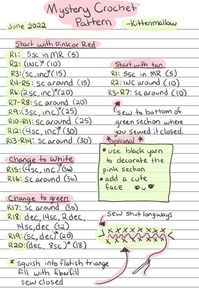 Mystery Crochet
Pattern
June 2022
-Kittenmallow
Start with Pink or Red
R1: 5sc in MR (5)
R2: (INC)⁵ (10)
R3: (sc, inc)⁵ (15)
R4-R5: sc around (15)
R6: (2sc, inc)⁵ (20)
R7-R8: sc around (20)
R9: (3sc, inc)⁵ (25)
R10-R11: sc around (25)
R12: (4sc, inc)⁵ (30)
R13-R14: sc around (30)
Change to White
sc around
Change to green
R17: sc around
R18: dec, 14sc, 2 dec,
14sc, dec
R19: (sc, dec)
R20: (dec, 8sc)² (18)
* squish into flattish triangle
fill with fiberfill
sew closed
Start with tan
R1: 5sc in MR (5)
R2: INC around (10)
R3-R7: sc around (10)
sew to bottom of
green section where
you sewed it closed.
*optional*
• use black yarn
to decorate the
pink section
• add a cute
face
Sew shut longways